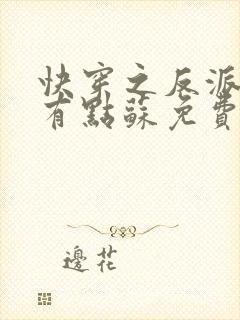 快穿之反派
有點蘇免費
邊花